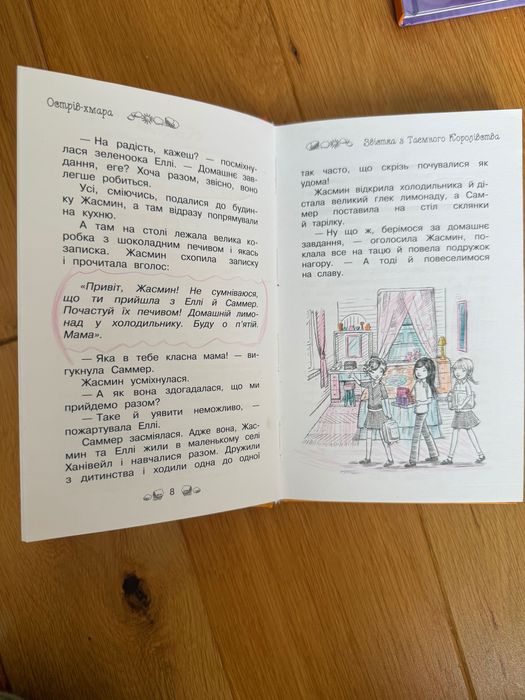 Острів-хмара
— На радість, кажеш? — посміхну-
лася зеленоока Еллі. — Домашнє зав-
дання, еге? Хоча разом, звісно, воно
легше робиться.
Усі, сміючись, подалися до будин-
ку Жасмин, а там відразу попрямували
на кухню.
А там на столі лежала велика ко-
робка з шоколадним печивом і якась
записка. Жасмин схопила записку
і прочитала вголос:
«Привіт, Жасмин! Не сумніваюся,
що ти прийшла з Еллі й Саммер.
Почастуй їх печивом! Домашній лимо-
над у холодильнику. Буду о п'ятій.
Мама».
— Яка в тебе класна мама! — ви-
гукнула Саммер.
Жасмин усміхнулася.
— А як вона здогадалася, що ми
прийдемо разом?
— Таке й уявити неможливо, —
пожартувала Еллі.
Саммер засміялася. Адже вона, Жас-
мин та Еллі жили в маленькому селі
Ханівейл і навчалися разом. Дружили
з дитинства і ходили одна до одної
8
Звістка з Таємного Королівства
так часто, що скрізь почувалися як
удома!
Жасмин відкрила холодильника й ді-
стала великий глек лимонаду, а Сам-
мер поставила на стіл склянки
й тарілку.
— Ну що ж, берімося за домашнє
завдання, — оголосила Жасмин, по-
клала все на тацю й повела подружок
нагору. — А тоді й повеселимося
на славу.